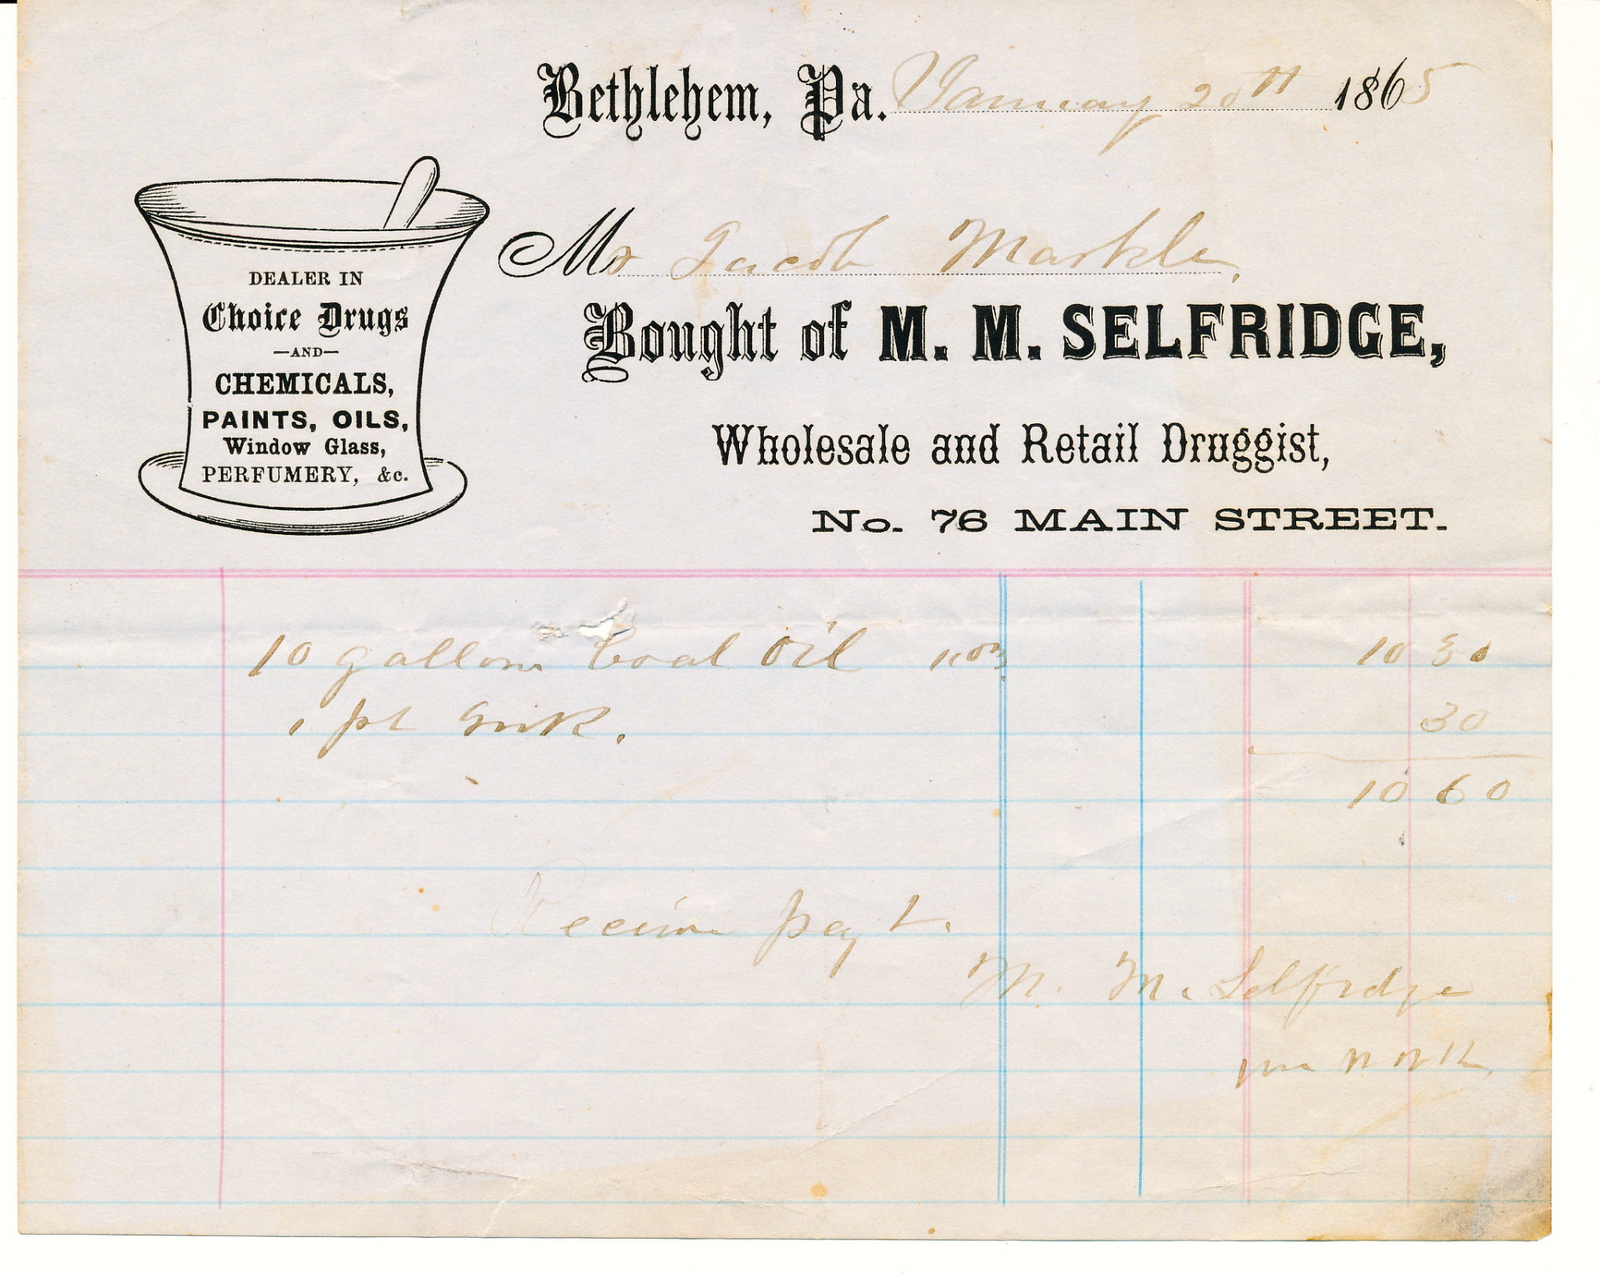 Bethlehem, Pa. January 20th 1865
Mr Jacob Markle,
DEALER IN
Choice Drugs
—AND—
CHEMICALS,
PAINTS, OILS,
Window Glass,
PERFUMERY, &c.
Bought of M. M. SELFRIDGE,
Wholesale and Retail Druggist,
No. 76 MAIN STREET.
10 gallons Coal Oil 1,03 10 30
1 pt Ink. 30
10 60
Payt.
M. M. Selfridge